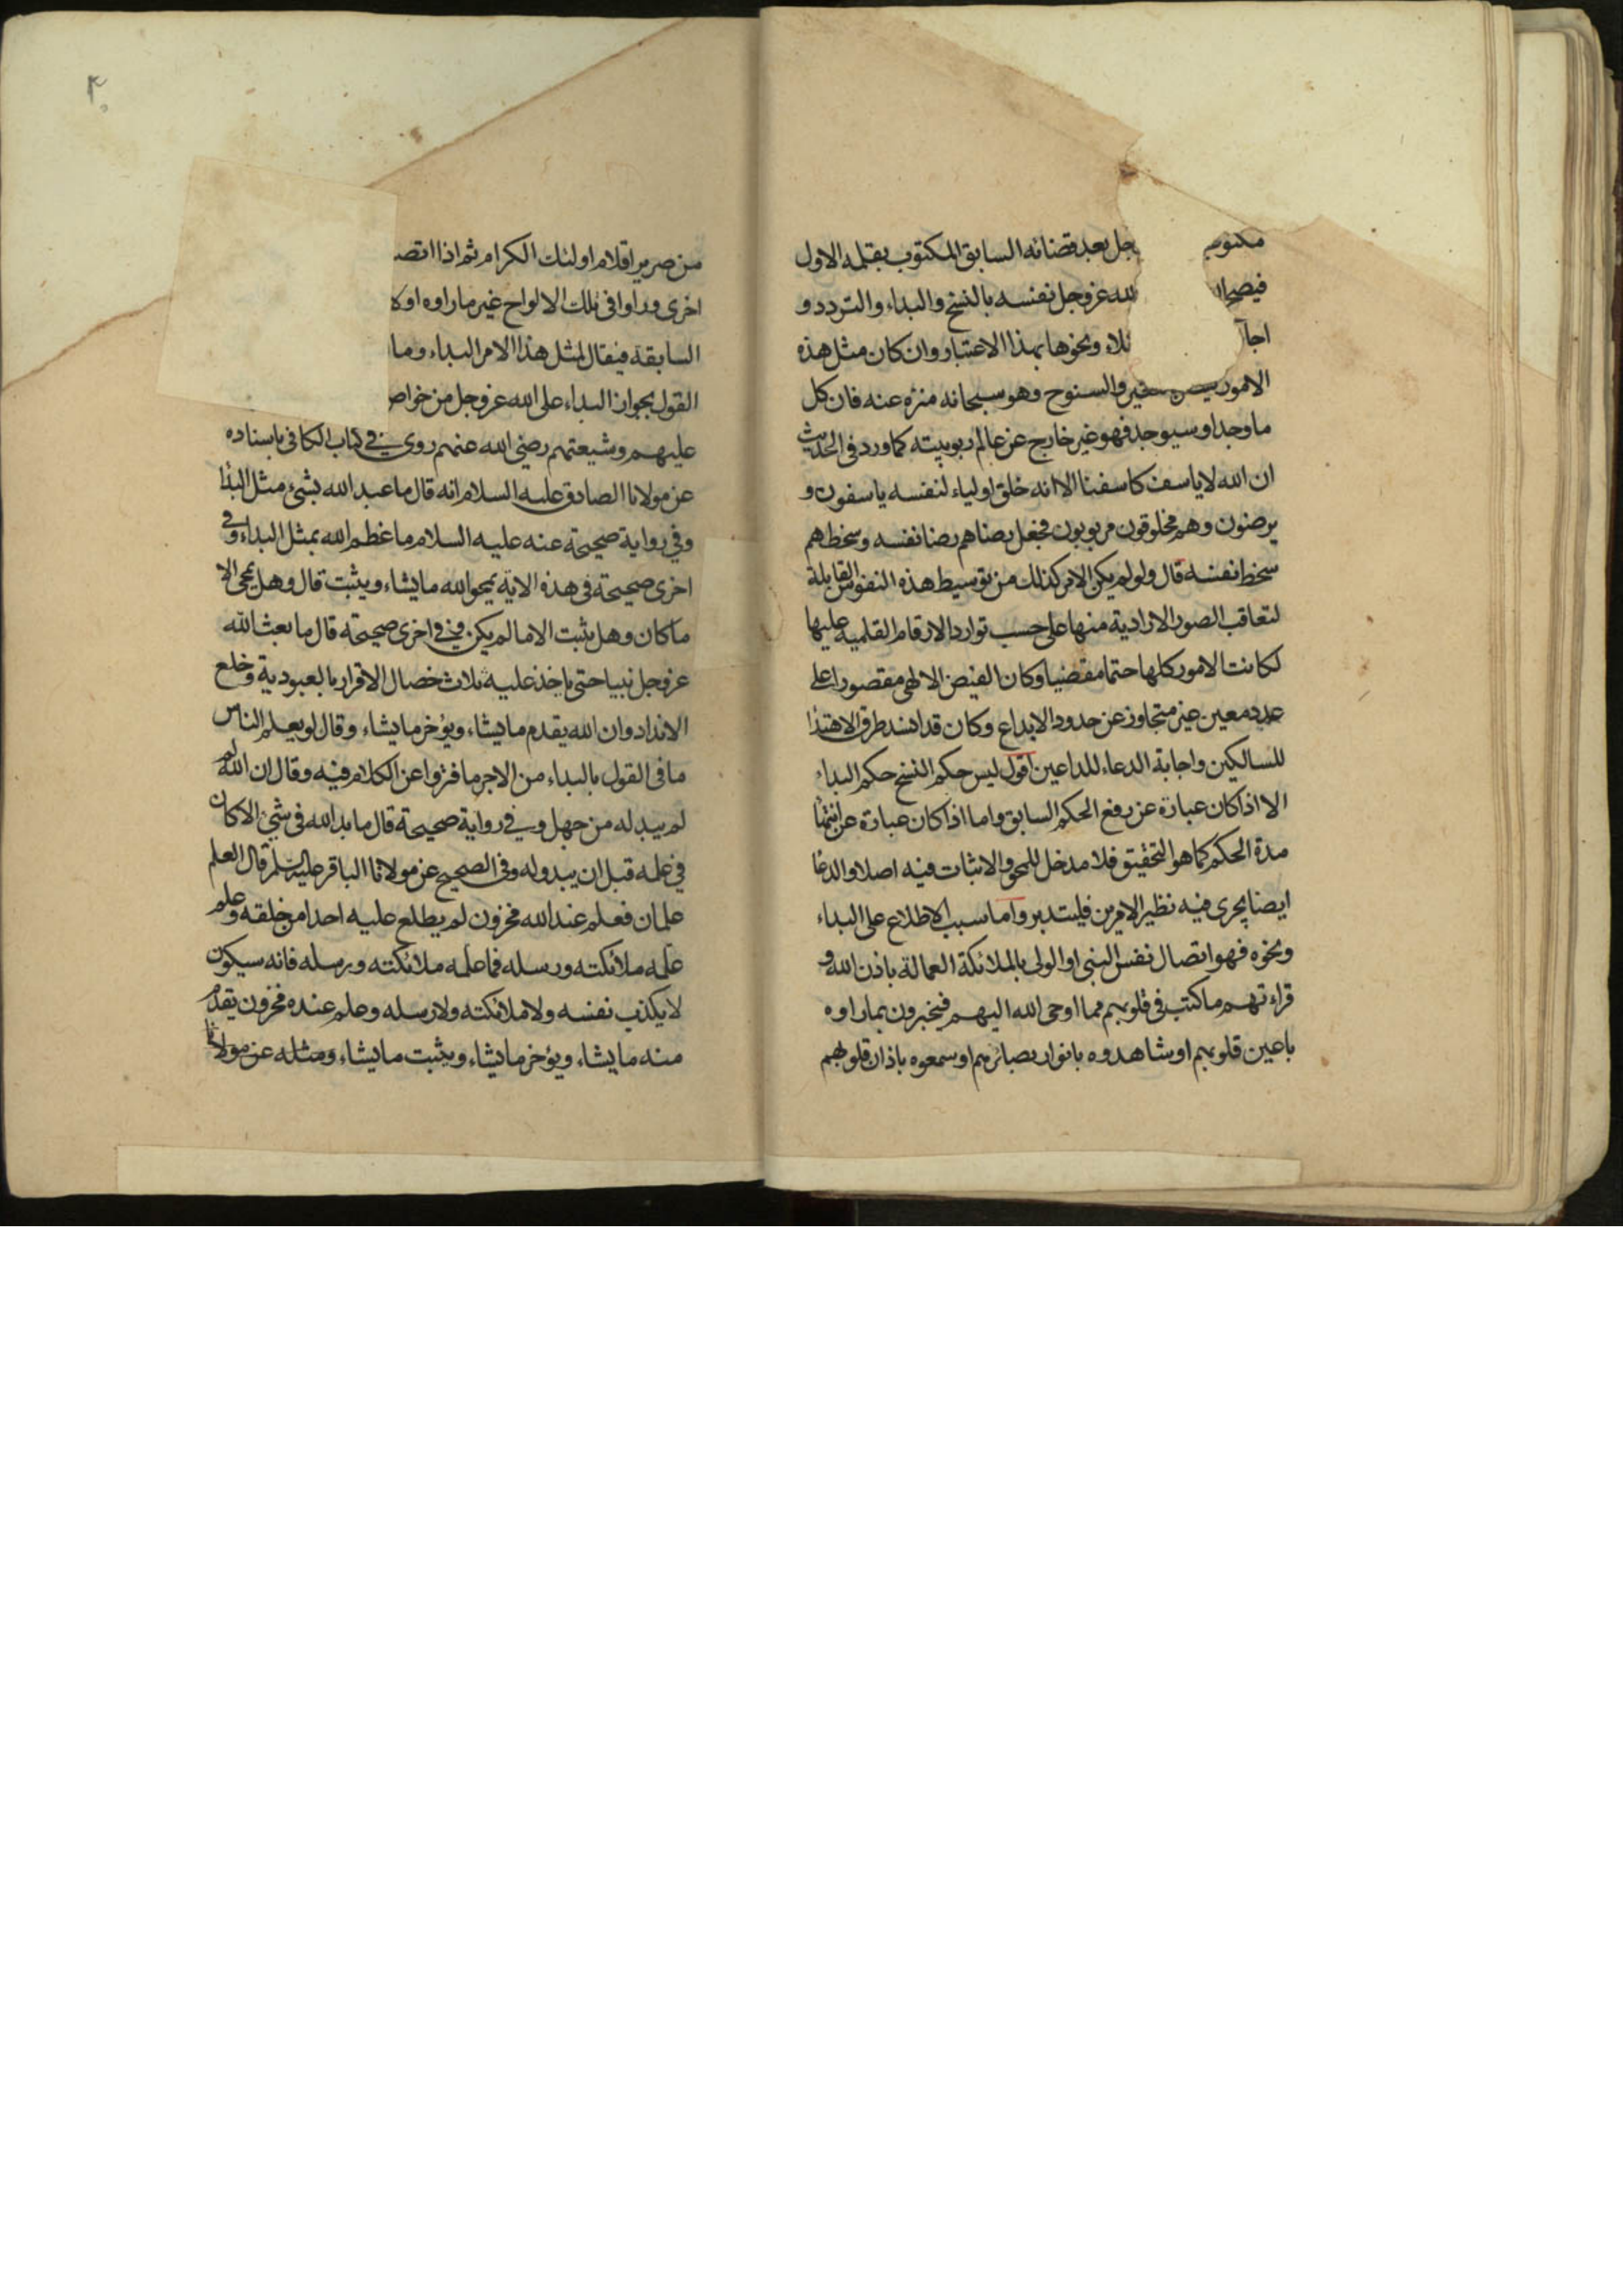 مكتوب جل بعد قضائه السابق المكتوب بقلمه الاول
فيصح لله عز وجل نفسه بالنسخ والبداء والتردد و
اجا تلاء ونحوها بهذا الاعتبار وان كان مثل هذه
الامور والسنوح وهو سبحانه منزه عنه فان كل
ما وجد او سيوجد فهو غير خارج عن عالم ربوبيته كما ورد في الحديث
ان الله لا ياسف كاسفنا الا انه خلق اولياء لنفسه ياسفون و
يرضون وهم مخلوقون مربوبون فجعل رضاهم رضا نفسه وسخطهم
سخط نفسه قال ولو لم يكن الامر كذلك من توسيط هذه النفوس القابلة
لتعاقب الصور الارادية منها على حسب توارد الارقام القلمية عليها
لكانت الامور كلها حتما مقضيا وكان الفيض الالهي مقصورا على
عدد معين غير متجاوز عن حدود الابداع وكان قد انسد طرق الاهتدا
للسالكين واجابة الدعاء للداعين اقول ليس حكم النسخ حكم البداء
الا اذا كان عبارة عن رفع الحكم السابق واما اذا كان عبارة عن انتها
مدة الحكم كما هو التحقيق فلا مدخل للمحو والاثبات فيه اصلا والدعا
ايضا يجرى فيه نظير الامرين فليتدبر واما سبب الاطلاع على البداء
ونحوه فهو اتصال نفس النبى او الولى بالملائكة العمالة باذن الله و
قراءتهم ما كتب في قلوبهم مما اوحى الله اليهم فيخبرون بما راوه
باعين قلوبهم او شاهدوه بانوار بصائرهم او سمعوه باذان قلوبهم
۴۰
من صرير اقلام اولئك الكرام ثم اذا اتصـ
اخرى وراوا في تلك الالواح غير ما راوه او كا
السابقة فيقال لمثل هذا الامر البداء وما
القول بجواز البداء على الله عز وجل من خواص
عليهم وشيعتهم رضي الله عنهم روى في كتاب الكافي باسناده
عن مولانا الصادق عليه السلام انه قال ما عبد الله بشئ مثل البدا
وفي رواية صحيحة عنه عليه السلام ما عظم الله بمثل البداء وفي
اخرى صحيحة في هذه الاية يمحو الله ما يشاء ويثبت قال وهل يمحى الا
ما كان وهل يثبت الا ما لم يكن وفي اخرى صحيحة قال ما بعث الله
عز وجل نبيا حتى ياخذ عليه ثلاث خصال الاقرار بالعبودية وخلع
الانداد وان الله يقدم ما يشاء ويؤخر ما يشاء وقال لو يعلم الناس
ما في القول بالبداء من الاجر ما فتروا عن الكلام فيه وقال ان الله
لم يبد له من جهل وفي رواية صحيحة قال ما بدا لله في شئ الا كان
في علمه قبل ان يبدو له وفي الصحيح عن مولانا الباقر عليه السلم قال العلم
علمان فعلم عند الله مخزون لم يطلع عليه احدا من خلقه وعلم
علمه ملائكته ورسله فما علمه ملائكته ورسله فانه سيكون
لا يكذب نفسه ولا ملائكته ولا رسله وعلم عنده مخزون يقدم
منه ما يشاء ويؤخر ما يشاء ويثبت ما يشاء ومثله عن مولانا